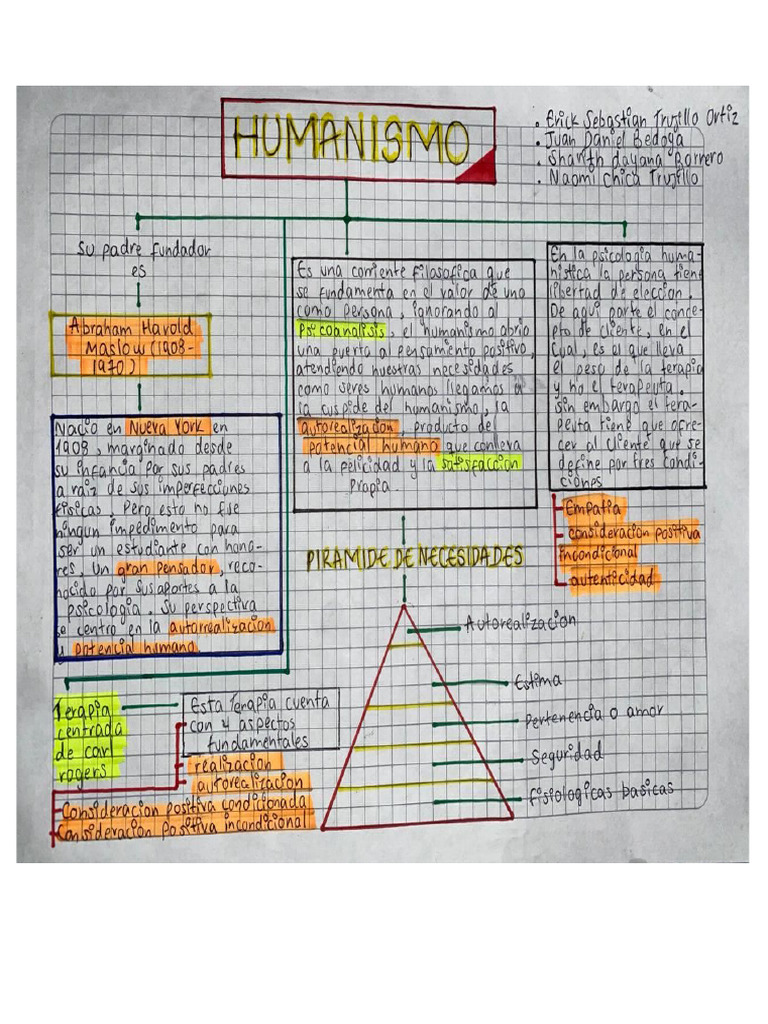 HUMANISMO
. Erick Sebastian Trujillo Ortiz
. Juan Daniel Bedoya
. Sharith dayana Barrero
. Naomi Chica Trujillo
Su padre fundador
es
Abraham Harold
Maslow (1908-
1970)
Nacio en Nueva York en
1908, marginado desde
su infancia por sus padres
a raiz de sus imperfecciones
fisicas. Pero esto no fue
ningun impedimento para
ser un estudiante con hono-
res, un gran pensador, reco-
nocido por sus aportes a la
psicologia. Su perspectiva
se centro en la autorrealizacion
y potencial humano
Es una corriente filasofica que
se fundamenta en el valor de uno
como persona, ignorando al
Psicoanalisis, el humanismo abrio
una puerta al pensamiento positivo,
atendiendo nuestras necesidades
como seres humanos llegamos a
la cuspide del humanismo, la
autorealizacion, producto del
potencial humano que conlleva
a la felicidad y la satisfaccion
Propia.
En la psicologia huma-
nistica la persona tiene
libertad de eleccion.
De aqui parte el conce-
pto de cliente, en el
cual, es el que lleva
el peso de la terapia
y no el terapeuta.
sin embargo el tera-
peuta tiene que ofre-
cer al cliente que se
define por tres condi-
ciones
Empatia
consideracion positiva
incondicional
autenticidad
PIRAMIDE DE NECESIDADES
Autorealizacion
Estima
Pertenencia o amor
Seguridad
fisiologicas basicas
Terapia
centrada
de carl
rogers
Esta Terapia cuenta
con 4 aspectos
fundamentales
realizacion
autorealizacion
Consideracion positiva condicionada
Consideracion positiva incondicional